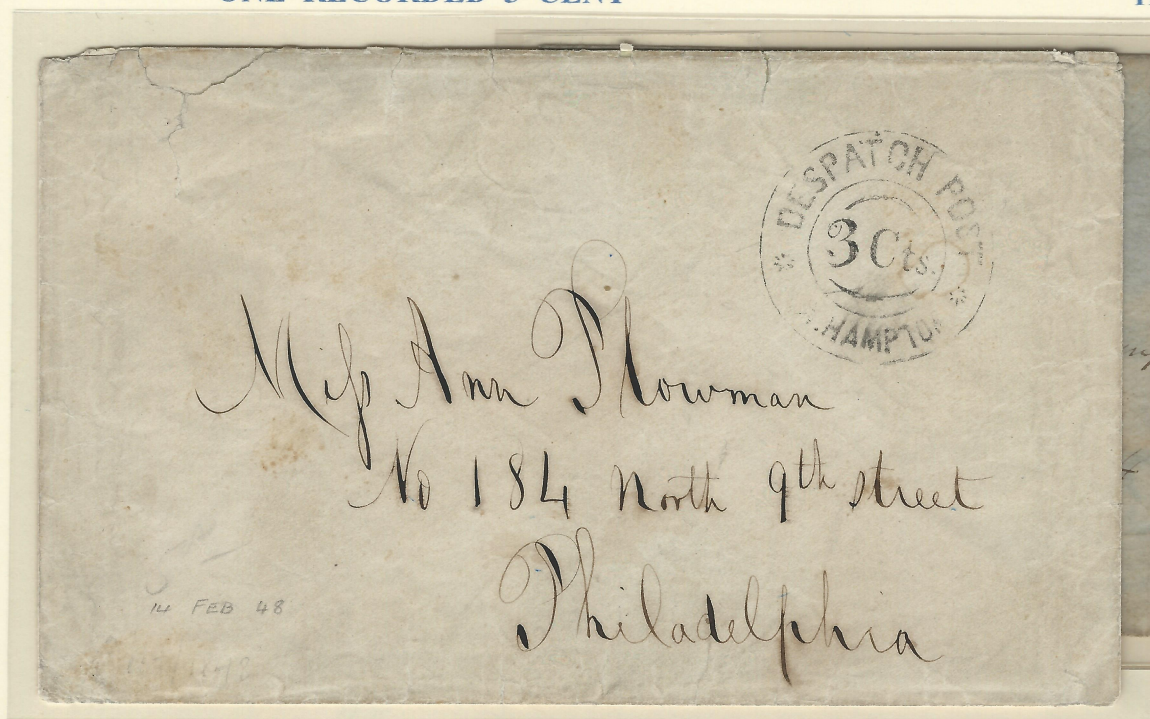 ONE RECORDED 3 CENT
DESPATCH POST
3 Cts.
HAMPTON
Miss Ann Plowman
No 184 North 9th street
Philadelphia
14 FEB 48